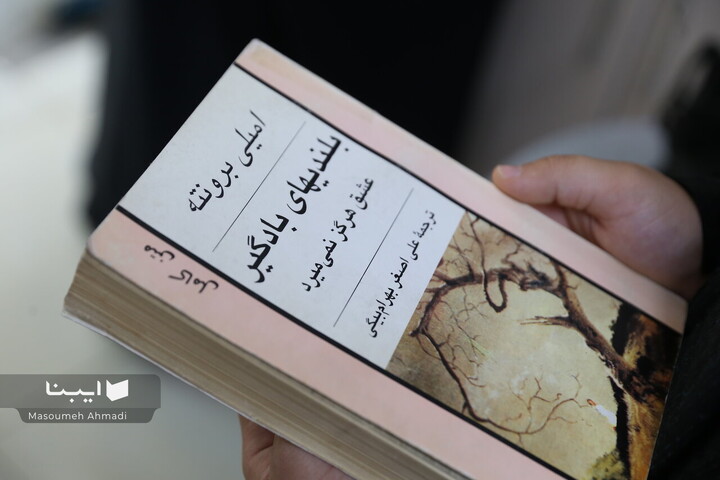 امیلی برونته
بلندیهای بادگیر
عشق هرگز نمی‌میرد
ترجمهٔ علی اصغر بهرام‌بیگی
ایبنا
Masoumeh Ahmadi